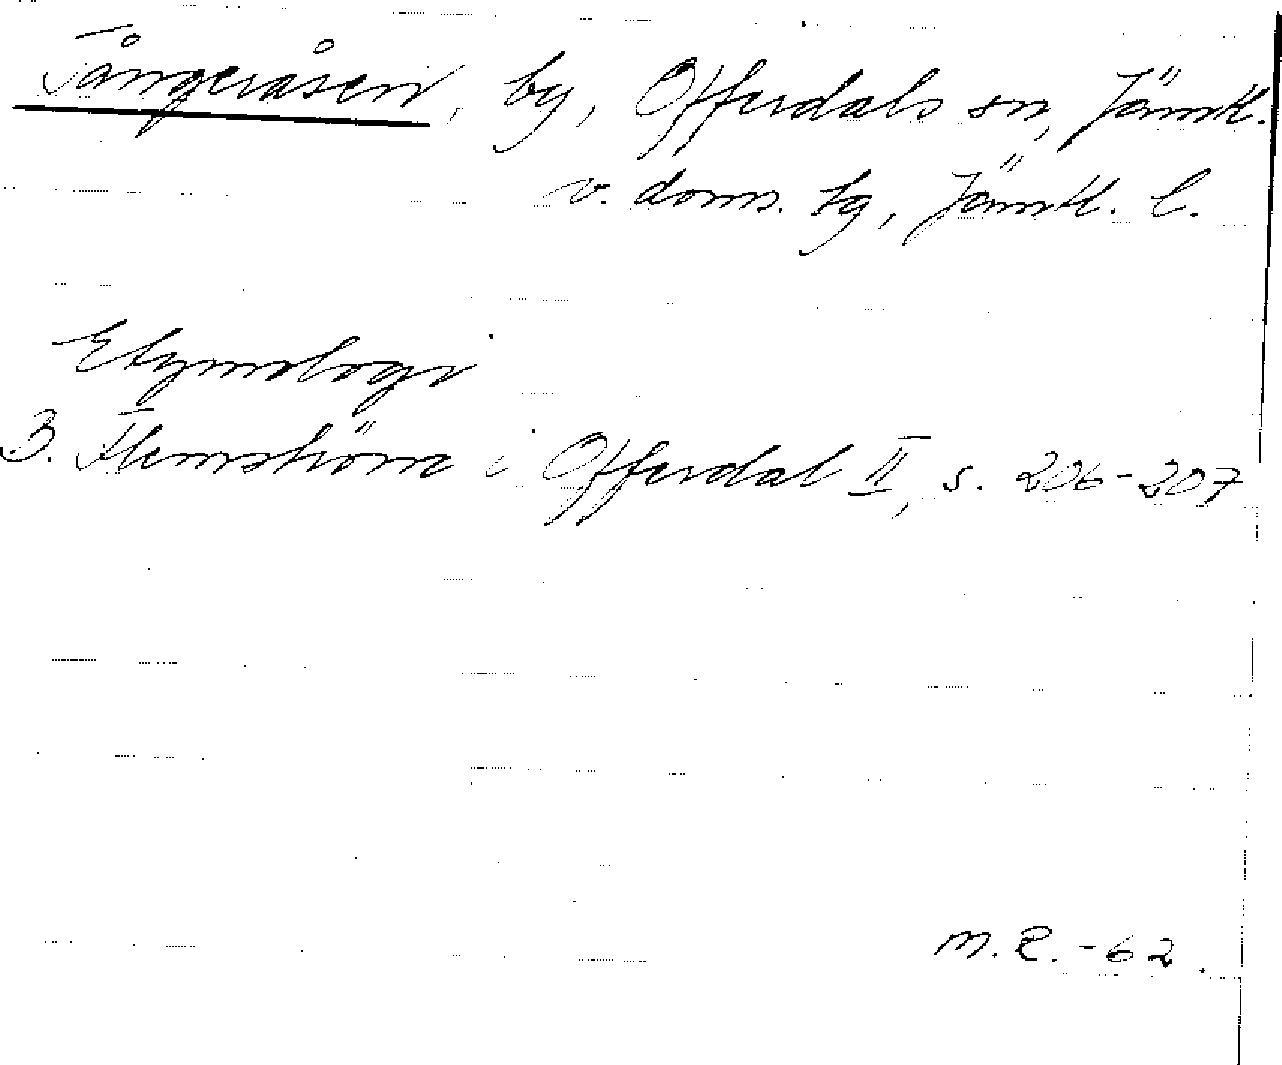 Tångeråsen, by, Offerdals sn, Jämtl.
v. doms. tg, Jämtl. l.
Etymologi
B. Flemström i Offerdal II, s. 206-207
M.R. -62.